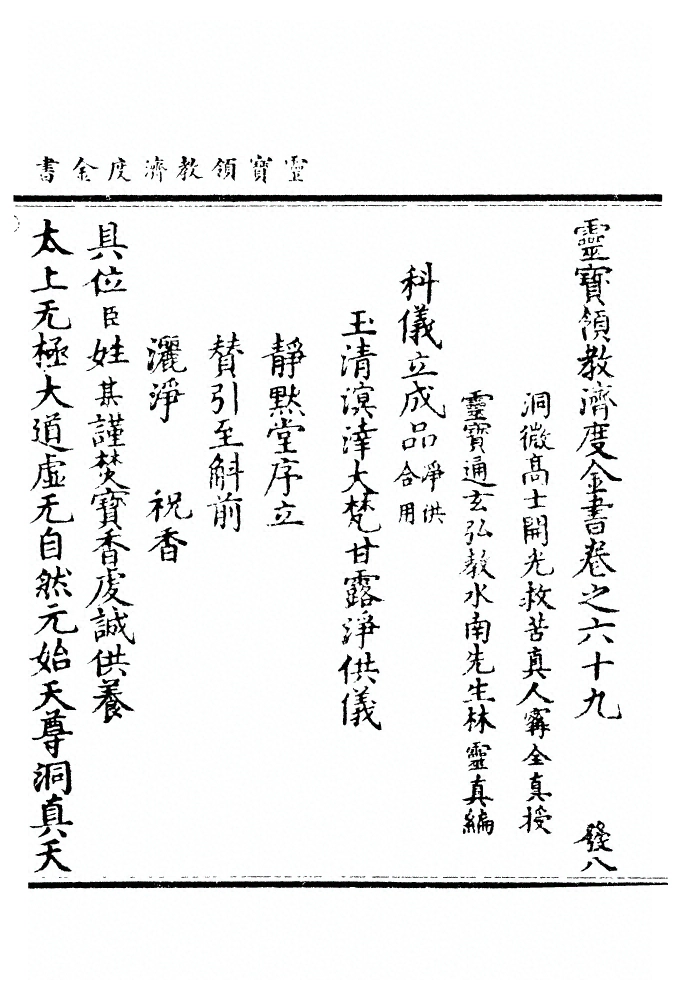 靈寶領教濟度金書
靈寶領教濟度金書卷之六十九 發八
洞微高士開光救苦真人甯全真授
靈寶通玄弘教水南先生林靈真編
科儀立成品 淨供合用
玉清溟涬大梵甘露淨供儀
靜默堂序立
賛引至斛前
灑淨 祝香
具位臣姓某謹焚寶香虔誠供養
太上无極大道虛无自然元始天尊洞真天